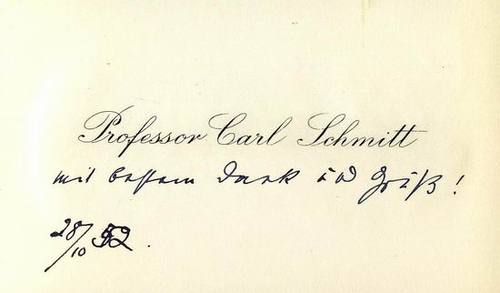 Professor Carl Schmitt
mit bestem Dank und Gruß!
28/10 52.